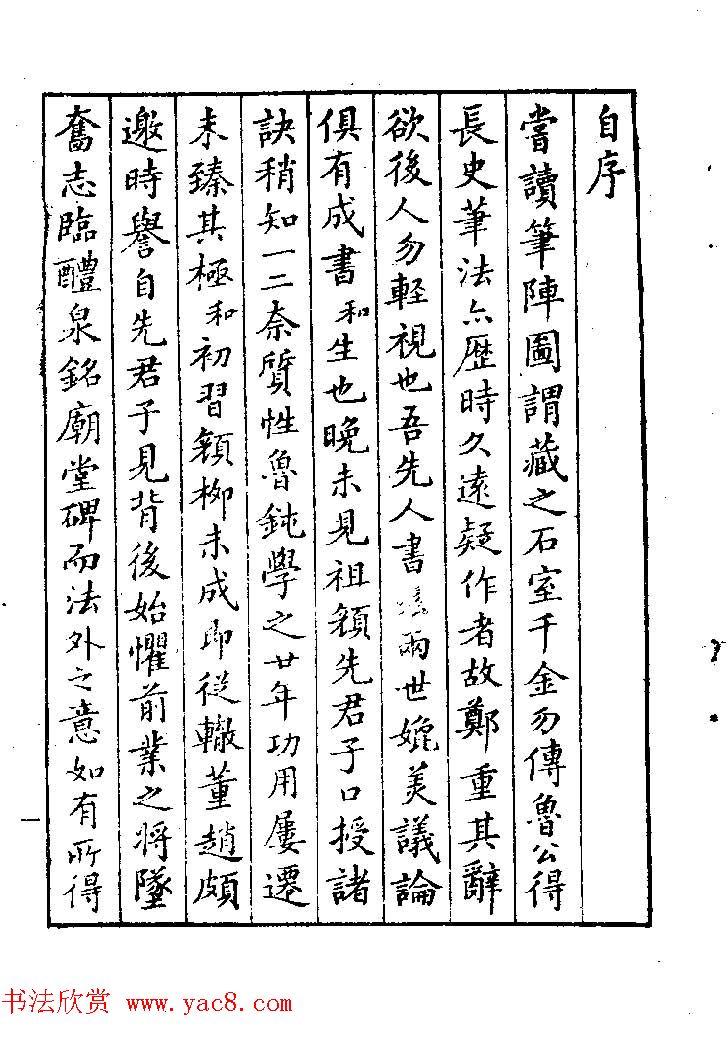 自序
嘗讀筆陣圖謂藏之石室千金勿傳魯公得
長史筆法亦歷時久遠疑作者故鄭重其辭
欲後人勿輕視也吾先人書兩世媲美議論
俱有成書和生也晚未見祖顏先君子口授諸
訣稍知一二奈質性魯鈍學之廿年功用屢遷
未臻其極和初習顏柳未成即從轍董趙頗
邀時譽自先君子見背後始懼前業之將墜
奮志臨醴泉銘廟堂碑而法外之意如有所得
一
书法欣赏 www.yac8.com